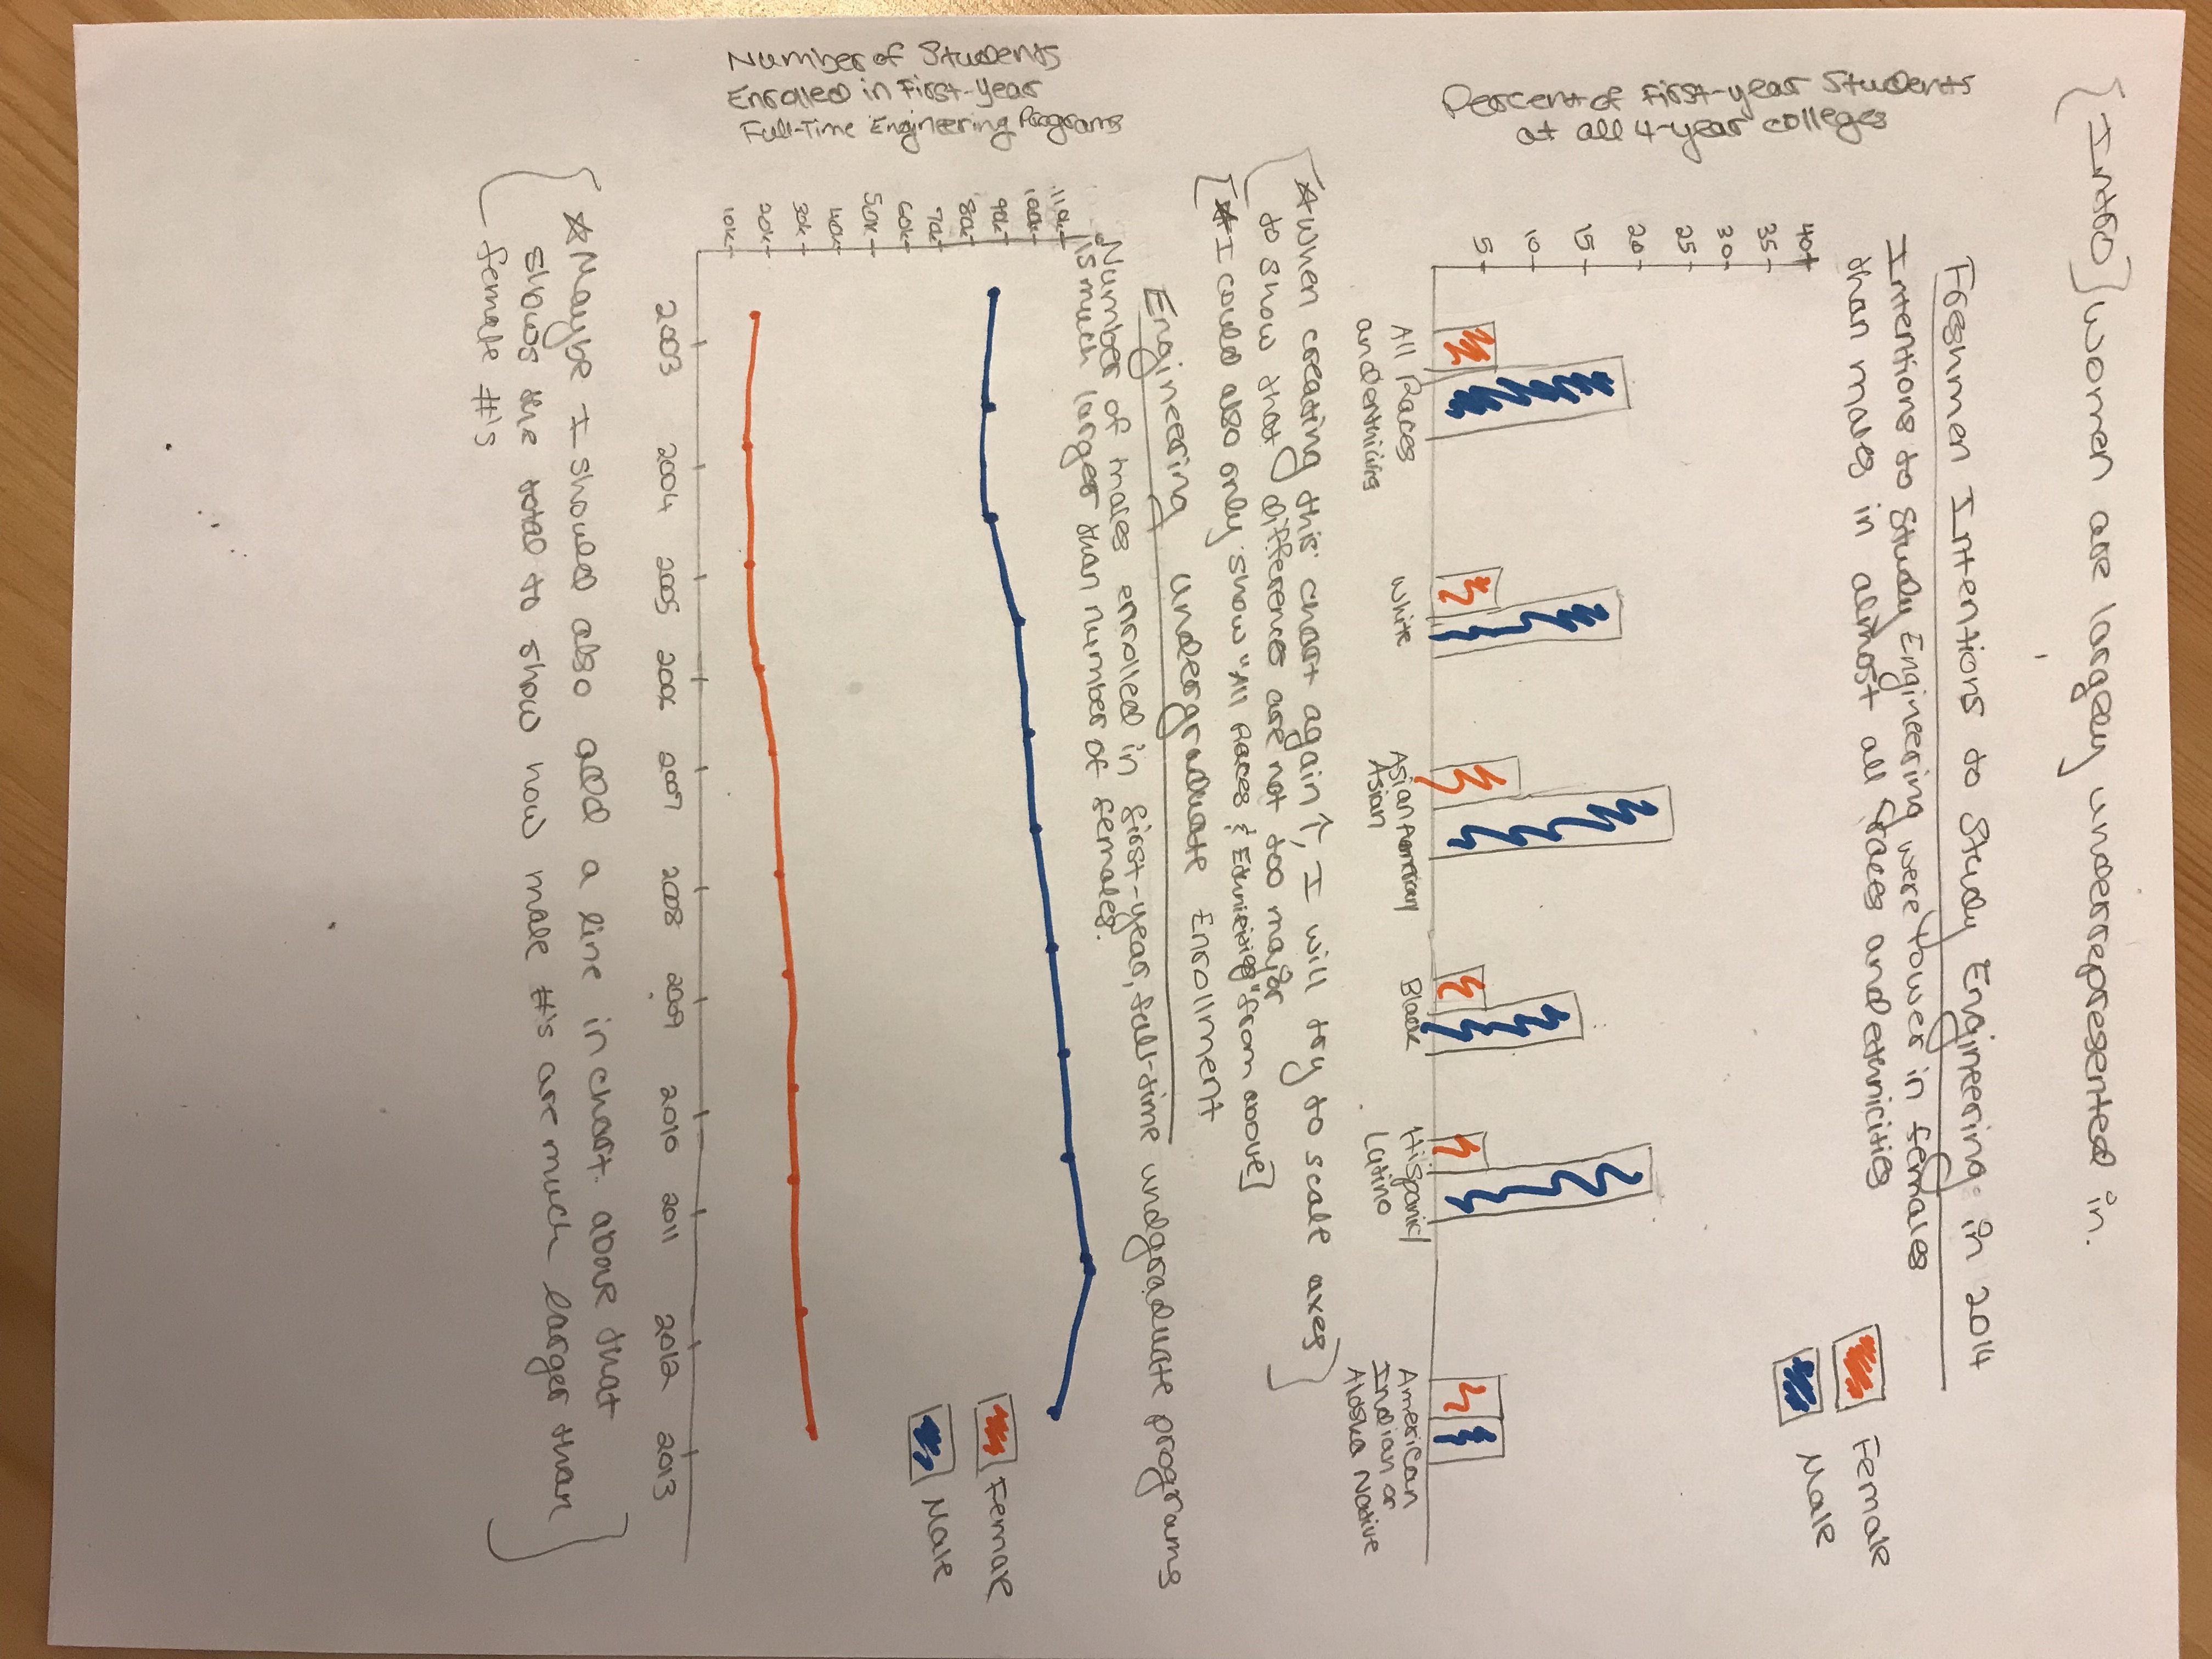 {Intro} Women are largely underrepresented in.
Freshmen Intentions to Study Engineering in 2014
Intentions to Study Engineering were lower in females
than males in almost all races and ethnicities
Female
Male
Percent of First-year Students
at all 4-year colleges
40+
35
30
25
20
15
10
5
All Races
and ethnicities
White
Asian American/
Asian
Black
Hispanic/
Latino
American
Indian or
Alaska Native
[☆When creating this chart again ↑, I will try to scale axes
to show that differences are not too major]
[☆I could also only show "All Races & Ethnicities" from above]
Engineering Undergraduate Enrollment
Number of males enrolled in first-year, full-time undgraduate programs
is much larger than number of females.
Number of Students
Enrolled in First-year
Full-Time Engineering Programs
110k
100k
90k
80k
70k
60k
50k
40k
30k
20k
10k
Female
Male
2003
2004
2005
2006
2007
2008
2009
2010
2011
2012
2013
[☆Maybe I should also add a line in chart above that
shows the total to show how male #'s are much larger than
female #'s]